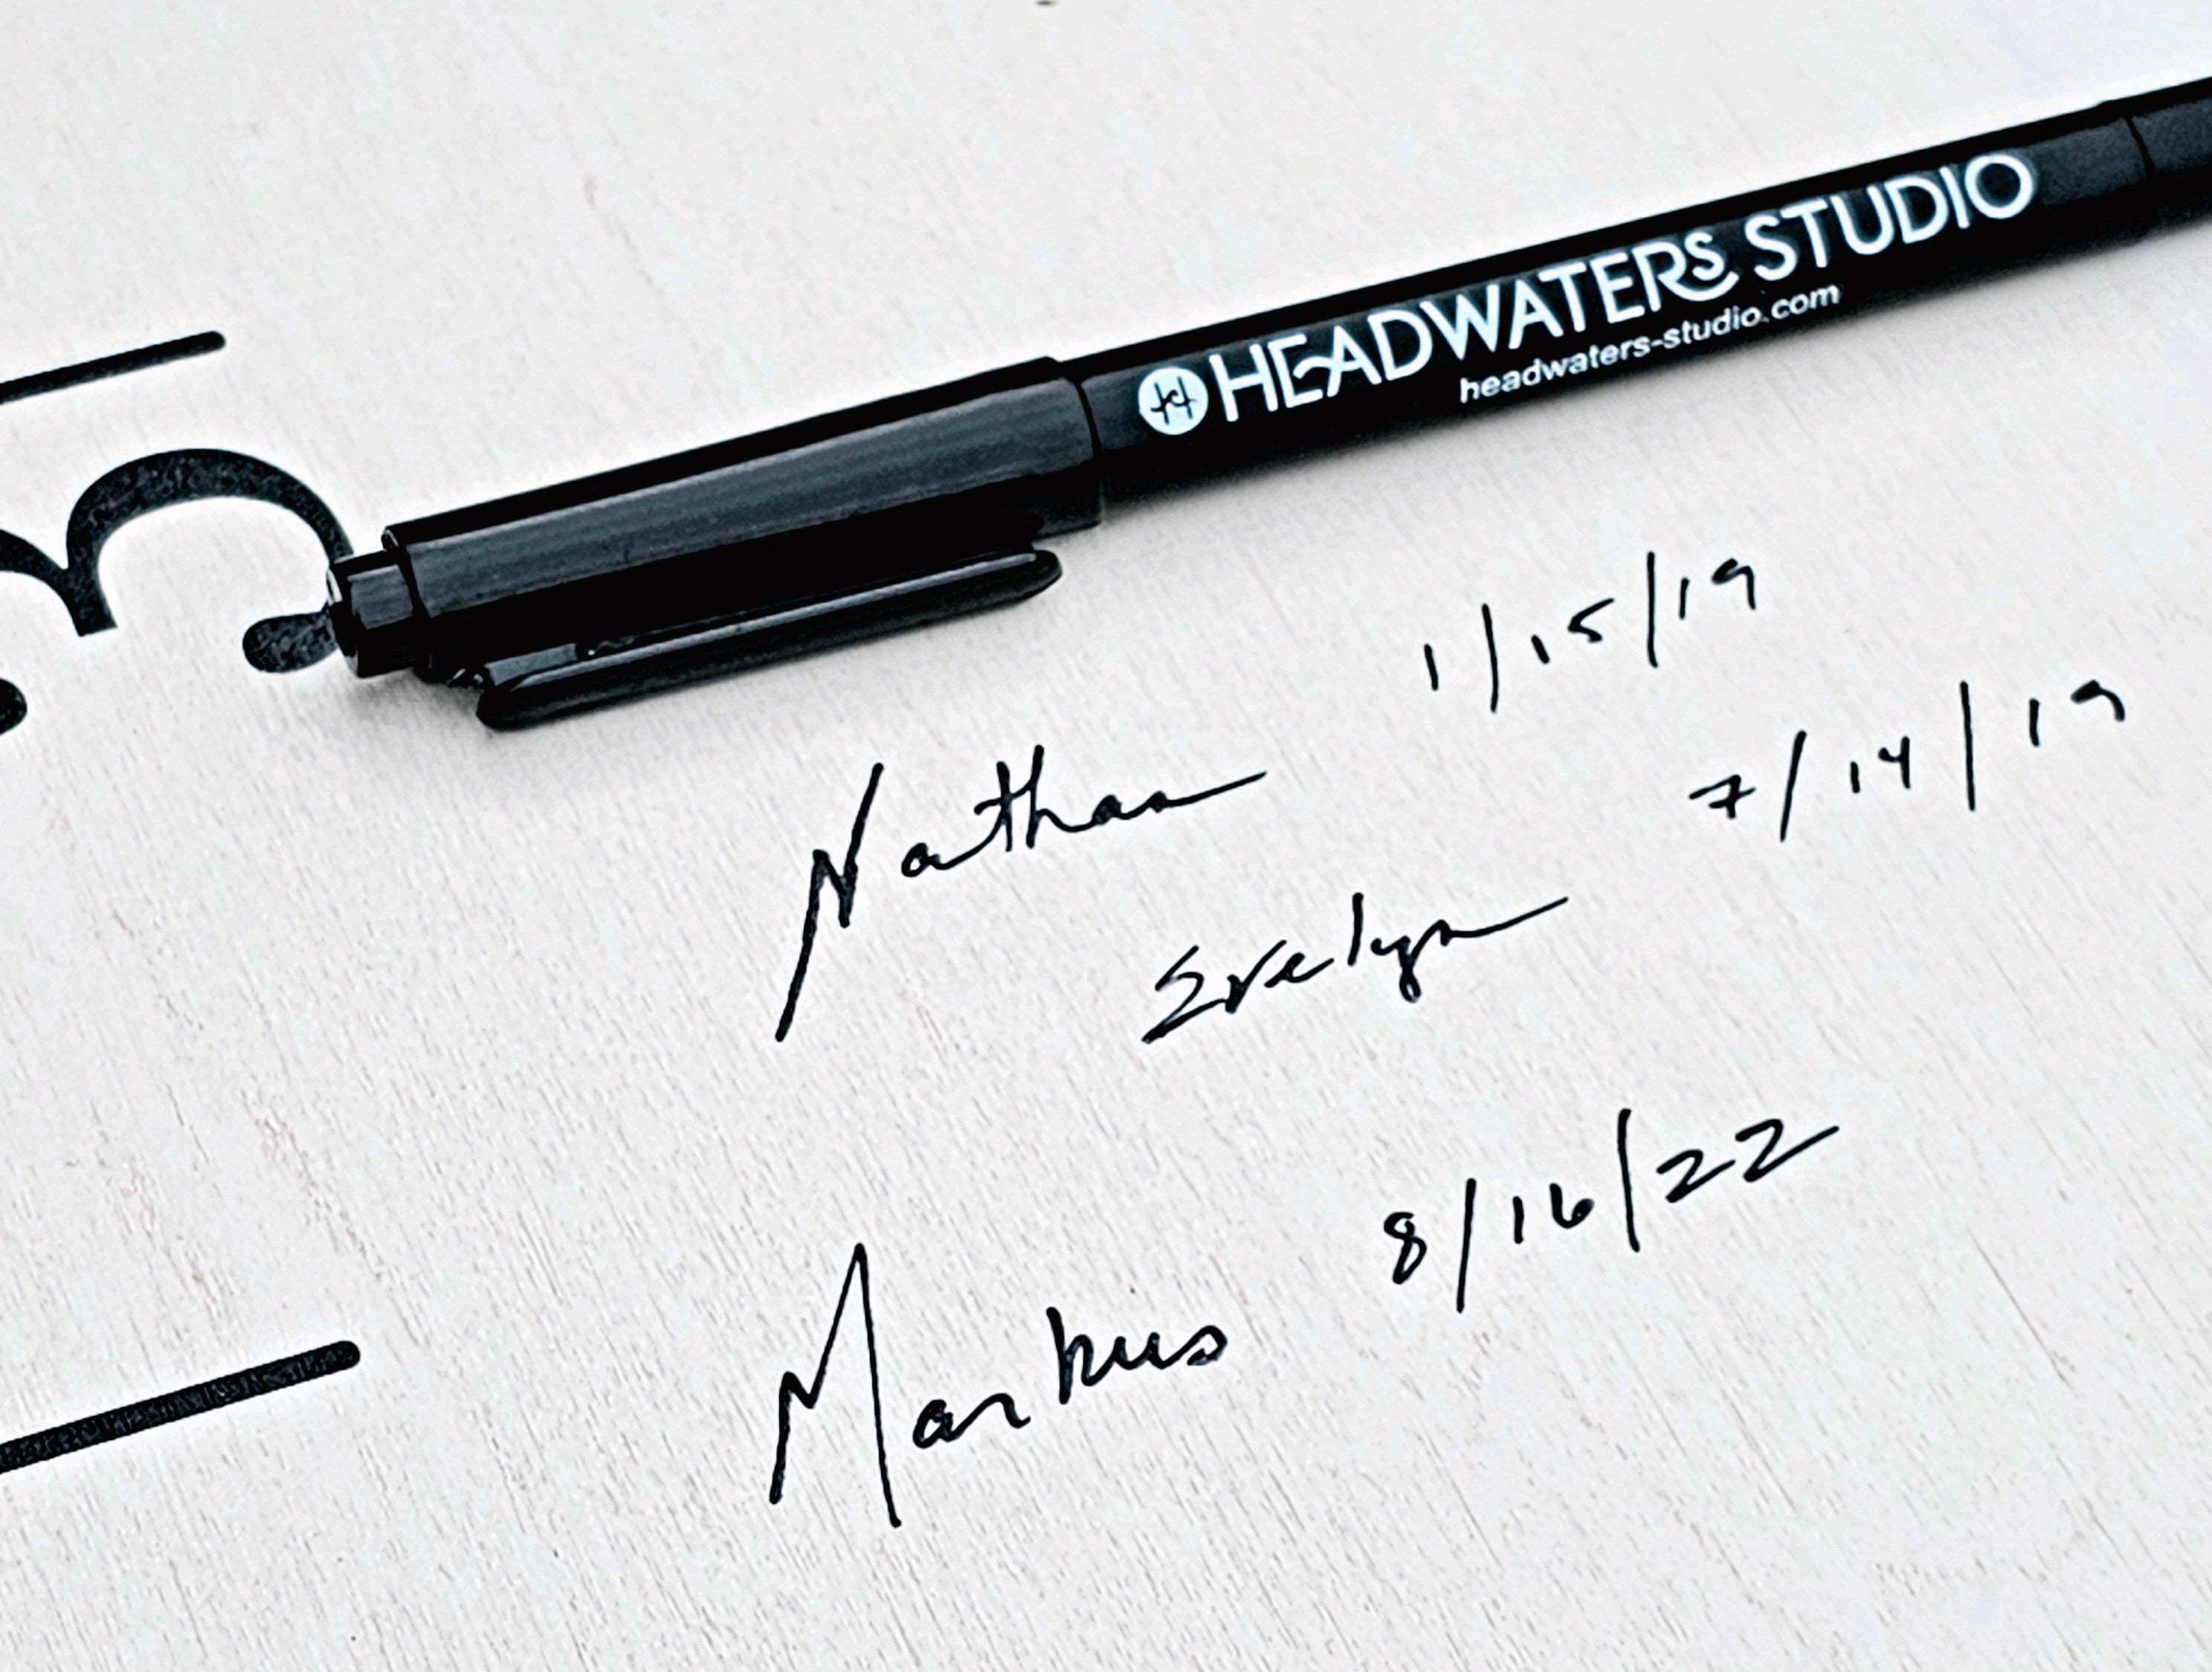 HEADWATERS STUDIO
headwaters-studio.com
Nathan 1/15/19
Evelyn 7/14/19
Markus 8/16/22